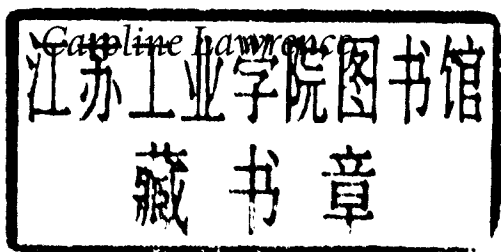 Caroline Lawrence
江苏工业学院图书馆
藏书章